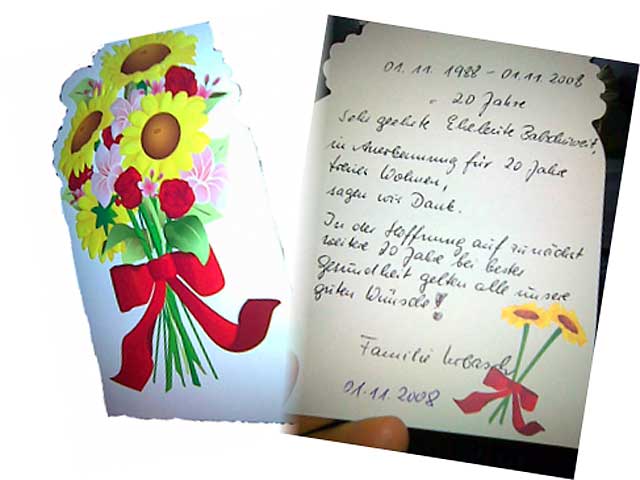 01. 11. 1988 – 01. 11. 2008
20 Jahre
Sehr geehrte Eheleute
in Anerkennung für 20 Jahre
treues Wohnen,
sagen wir Dank.
In der Hoffnung auf zunächst
weitere 20 Jahre bei bester
Gesundheit gelten alle unsere
guten Wünsche!
Familie
01.11.2008